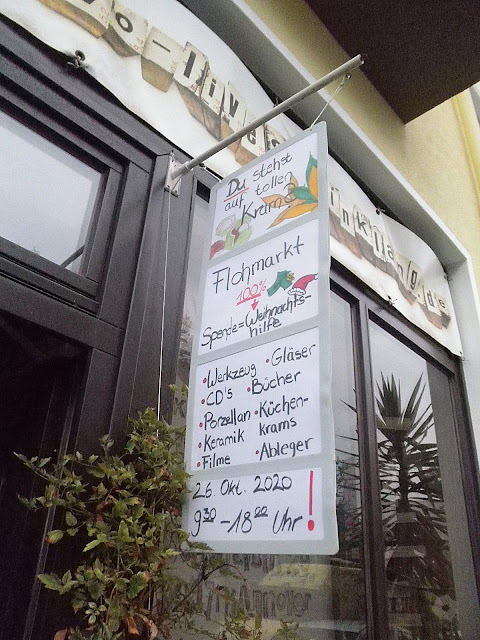 Du stehst
auf tollen
Kram?
Flohmarkt
100%
Spende = Weihnachts-
hilfe
• Werkzeug
• CD's
• Porzellan
• Keramik
• Filme
• Gläser
• Bücher
• Küchen-
krams
• Ableger
26. Okt. 2020
9³⁰ - 18⁰⁰ Uhr!